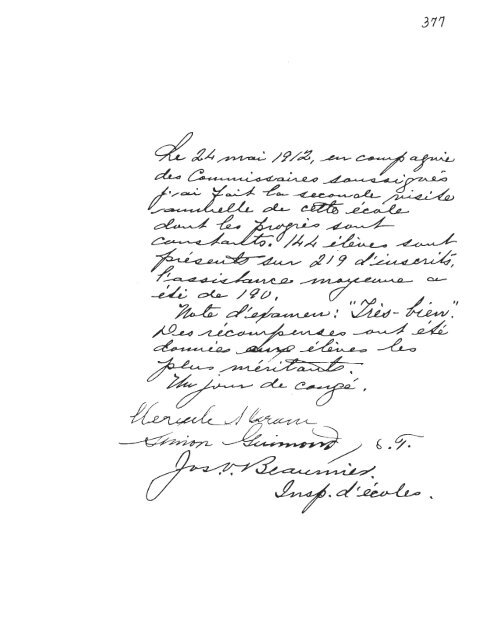 377
Le 24 mai 1912, en compagnie
des Commissaires soussignés
j'ai fait la seconde visite
annuelle de cette école
dont les progrès sont
constants. 144 élèves sont
présents sur 219 d'inscrits,
l'assistance moyenne a
été de 190.
Note d'examen: "Très-bien".
Des récompenses ont été
données aux élèves les
plus méritants.
Un jour de congé.
Simon Guimond, s. t.
Jos. V. Beaumier.
Insp. d'écoles.